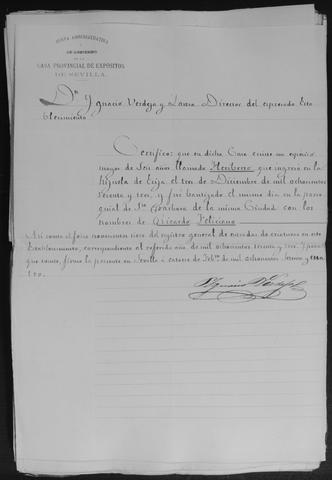 JUNTA ADMINISTRATIVA
Y
DE GOBIERNO
DE LA
CASA PROVINCIAL DE EXPÓSITOS
DE SEVILLA.
Dn. Ygnacio Verdeja y Director del espresado Esta
blecimiento
Certifico: que en dicha Casa existe un espósito
mayor de seis años llamado Heriberto que ingresó en la
hijuela de Ecija el tres de Diciembre de mil ochocientos
sesenta y tres, y fué bautizado el mismo dia en la parro-
quial de Sta. Barbara de la misma Ciudad con los
nombres de Ricardo Feliciano
Asi consta al folio nove del registro general de entradas de criaturas en este
Establecimiento, correspondiente al referido año de mil ochocientos sesenta y tres. Y para
que conste firmo la presente en Sevilla á catorce de Febo. de mil ochocientos
Ygnacio Verdeja